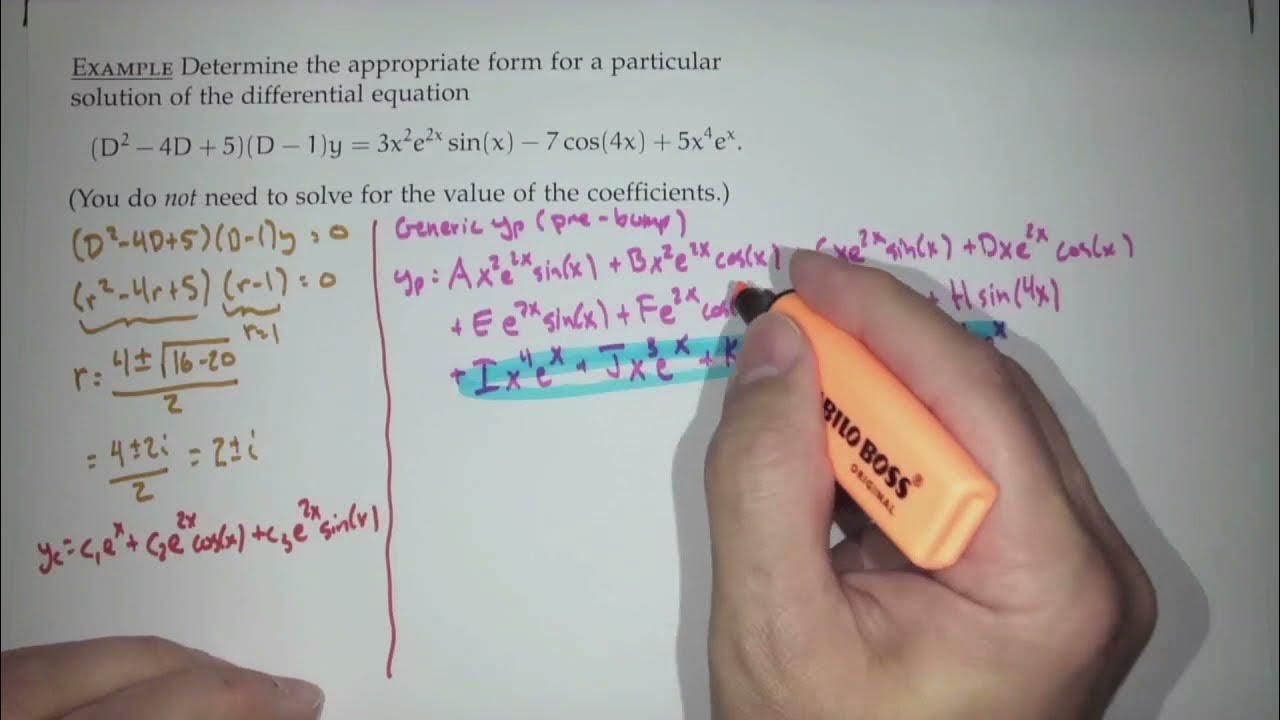 EXAMPLE Determine the appropriate form for a particular
solution of the differential equation
(D² − 4D + 5)(D − 1)y = 3x²e²ˣ sin(x) − 7 cos(4x) + 5x⁴eˣ.
(You do not need to solve for the value of the coefficients.)
(D²-4D+5)(D-1)y = 0
(r²-4r+5)(r-1) = 0
r=1
r = 4 ± √16-20
2
= 4 ± 2i = 2 ± i
2
y_c = c₁eˣ + c₂e²ˣcos(x) + c₃e²ˣsin(x)
Generic yp (pre-bump)
yp = Ax²e²ˣsin(x) + Bx²e²ˣcos(x) + Cxe²ˣsin(x) + Dxe²ˣcos(x)
+ Ee²ˣsin(x) + Fe²ˣ + Hsin(4x)
+ Ix⁴eˣ + Jx³eˣ + K
BILO BOSS®
ORIGINAL